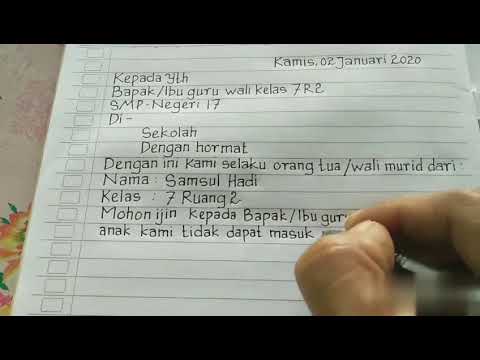 Kamis, 02 Januari 2020
Kepada Yth
Bapak/Ibu guru wali kelas 7R2
SMP-Negeri 17
Di-
Sekolah
Dengan hormat
Dengan ini Kami selaku orang tua/wali murid dari:
Nama : Samsul Hadi
Kelas : 7 Ruang 2
Mohon ijin Kepada Bapak/Ibu guru
anak kami tidak dapat masuk